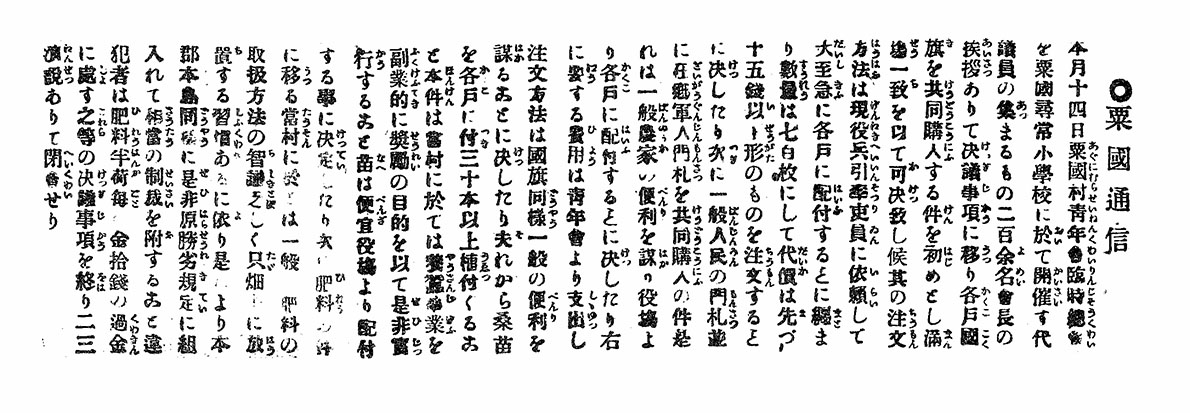 ◎粟國通信
本月十四日粟國村靑年會臨時總會
を粟國尋常小學校に於て開催す代
議員の集まるもの二百余名會長の
挨拶ありて决議事項に移り各戶國
旗を共同購入する件を初めとし滿
塲一致を以て可决致し候其の注文
方法は現役兵引率吏員に依賴して
大至急に各戶に配付するとに纏ま
り數量は七百枚にして代價は先づ
十五錢以
形のものを注文すると
に决したり次に一般人民の門札並
に在鄕軍人門札を共同購入の件是
れは一般農家の便利を謀り役塲よ
り各戶に配付するとに决したり右
に要する費用は靑年會より支出し
注文方法は國旗同樣一般の便利を
謀るとに决したり夫れから桑苗
を各戶に付三十本以上植付くるこ
と本件は當村に於ては養蠶事業を
副業的に奬勵の目的を以て是非實
行すると苗は便宜役塲より配付
する事に决定したり次に肥料の件
に移る當村に於ては一般 肥料の
取扱方法の智識乏しく只畑
に放
置する習慣あるに依り是により本
郡本島同樣に是非原勝劣規定に組
入れて相當の制裁を附すると違
犯者は肥料半荷每に金拾錢の過金
に處す之等の决議事項を終り二三
演說ありて閉會せり